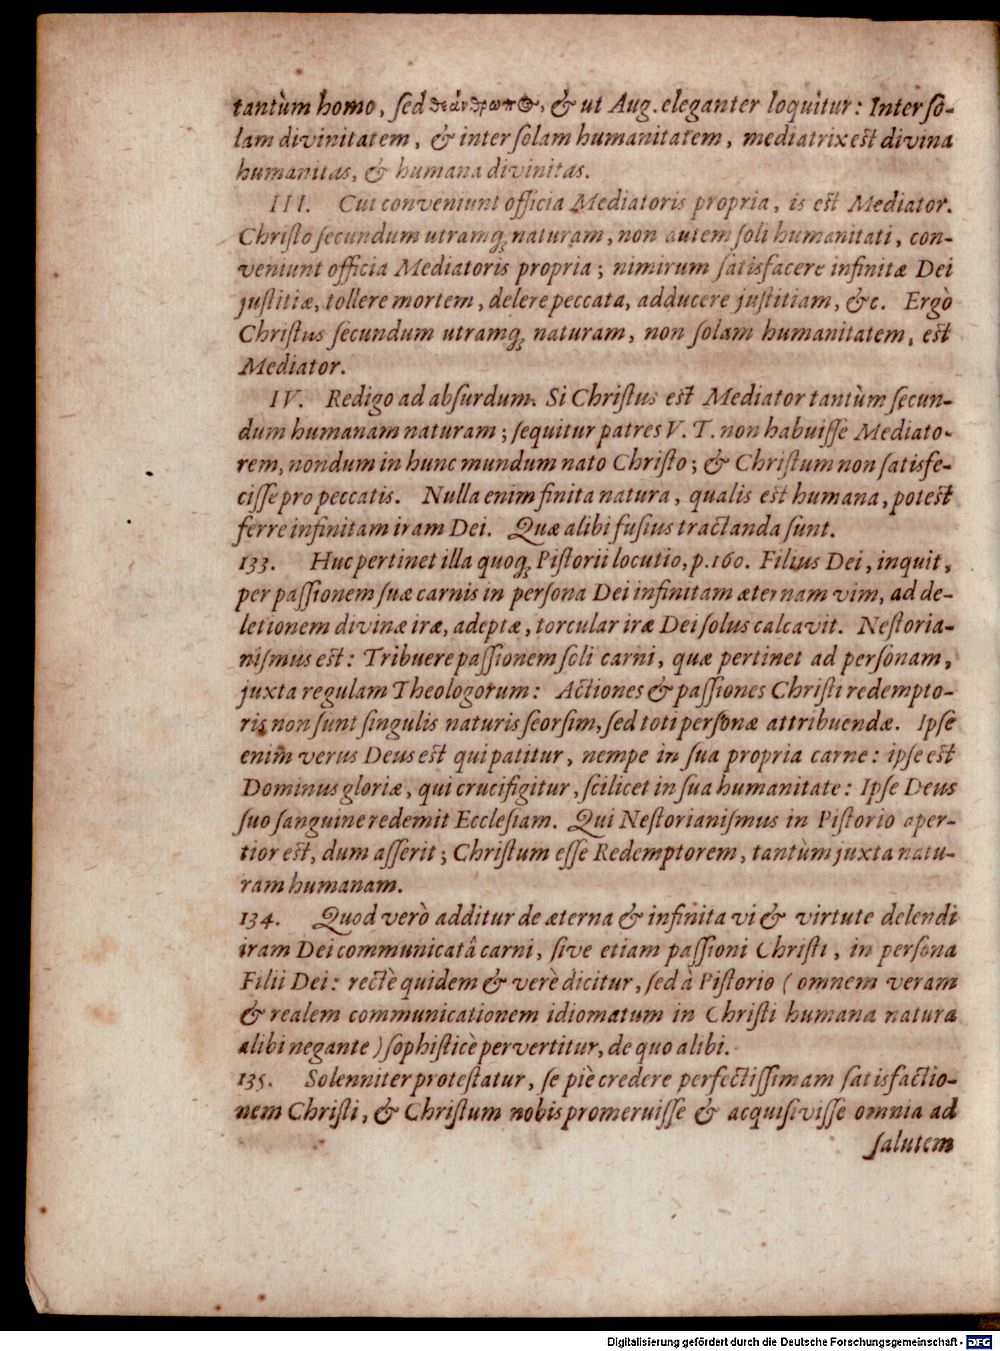 tantùm homo, ſed θεάνθρωπος, & ut Aug. eleganter loquitur: Inter ſo-
lam divinitatem, & inter ſolam humanitatem, mediatrix est divina
humanitas, & humana divinitas.
III. Cui conveniunt officia Mediatoris propria, is est Mediator.
Chriſto ſecundum utramq; naturam, non autem ſoli humanitati, con-
veniunt officia Mediatoris propria; nimirum ſatisfacere infinitæ Dei
juſtitiæ, tollere mortem, delere peccata, adducere juſtitiam, &c. Ergò
Chriſtus ſecundum utramq; naturam, non ſolam humanitatem, est
Mediator.
IV. Redigo ad abſurdum. Si Chriſtus est Mediator tantùm ſecun-
dum humanam naturam; ſequitur patres V. T. non habuiſſe Mediato-
rem, nondum in hunc mundum nato Chriſto; & Chriſtum non ſatisfe-
ciſſe pro peccatis. Nulla enim finita natura, qualis est humana, potest
ferre infinitam iram Dei. Quæ alibi fuſius tractanda ſunt.
133. Huc pertinet illa quoq; Piſtorii locutio, p. 160. Filius Dei, inquit,
per paſſionem ſuæ carnis in perſona Dei infinitam æternam vim, ad de-
letionem divinæ iræ, adeptæ, torcular iræ Dei ſolus calcavit. Neſtoria-
niſmus est: Tribuere paſſionem ſoli carni, quæ pertinet ad perſonam,
juxta regulam Theologorum: Actiones & paſſiones Chriſti redempto-
ris non ſunt ſingulis naturis ſeorſim, ſed toti perſonæ attribuendæ. Ipſe
enim verus Deus est qui patitur, nempe in ſua propria carne: ipſe est
Dominus gloriæ, qui crucifigitur, ſcilicet in ſua humanitate: Ipſe Deus
ſuo ſanguine redemit Eccleſiam. Qui Neſtorianiſmus in Piſtorio aper-
tior est, dum aſſerit; Chriſtum eſſe Redemptorem, tantùm juxta natu-
ram humanam.
134. Quod verò additur de æterna & infinita vi & virtute delendi
iram Dei communicatâ carni, ſive etiam paſſioni Chriſti, in perſona
Filii Dei: rectè quidem & verè dicitur, ſed à Piſtorio (omnem veram
& realem communicationem idiomatum in Chriſti humana natura
alibi negante) ſophiſticè pervertitur, de quo alibi.
135. Solenniter proteſtatur, ſe piè credere perfectiſſimam ſatisfactio-
nem Chriſti, & Chriſtum nobis promeruiſſe & acquiſiviſſe omnia ad
ſalutem
Digitalisierung gefördert durch die Deutsche Forschungsgemeinschaft - DFG